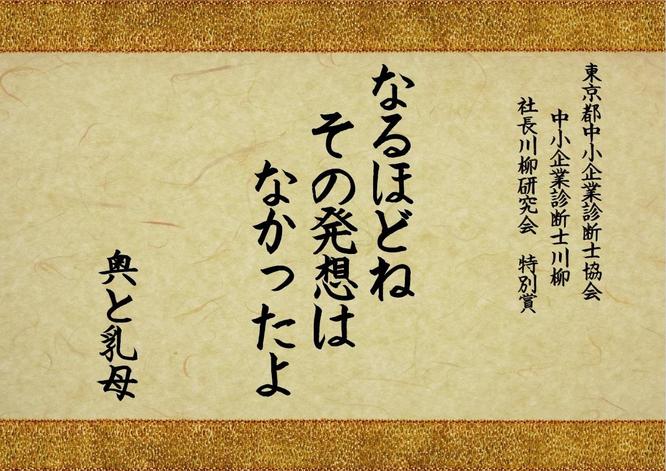 東京都中小企業診断士協会
中小企業診断士川柳
社長川柳研究会　特別賞
なるほどね
その発想は
なかったよ
奥と乳母